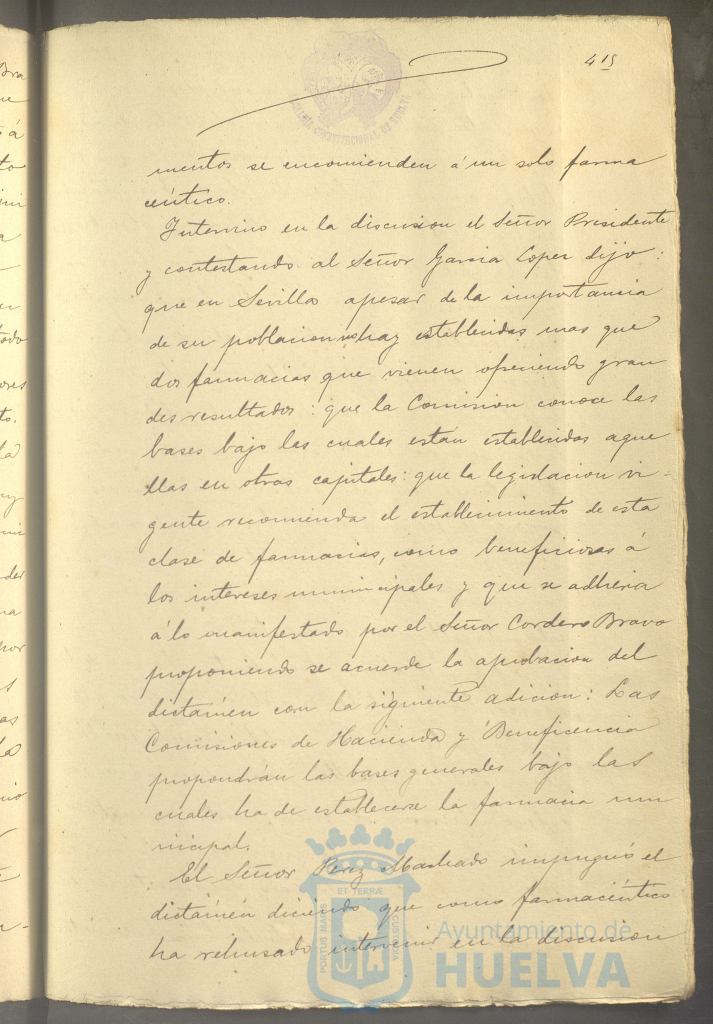 415
mentos se encomienden á un solo farma
céutico.
Intervino en la discusion el Señor Presidente
y contestando al Señor Garcia Lopez dijo:
que en Sevilla apesar de la importancia
de su poblacion no hay establecidas mas que
dos farmacias que vienen ofreciendo gran
des resultados: que la Comision conoce las
bases bajo las cuales estan establecidas aque
llas en otras capitales: que la legislacion vi-
gente recomienda el establecimiento de esta
clase de farmacias, como beneficiosas á
los intereses municipales y que se adheria
á lo manifestado por el Señor Cordero Bravo
proponiendo se acuerde la aprobacion del
dictámen con la siguiente adicion: Las
Comisiones de Hacienda y Beneficencia
propondrán las bases generales bajo las
cuales ha de establecerse la farmacia mu
nicipal.
El Señor Perez Machado impugnó el
dictámen diciendo que como farmacéutico
ha rehusado intervenir en la discusion
PORTUS MARIS ET TERRÆ CUSTODIA
Ayuntamiento de
HUELVA